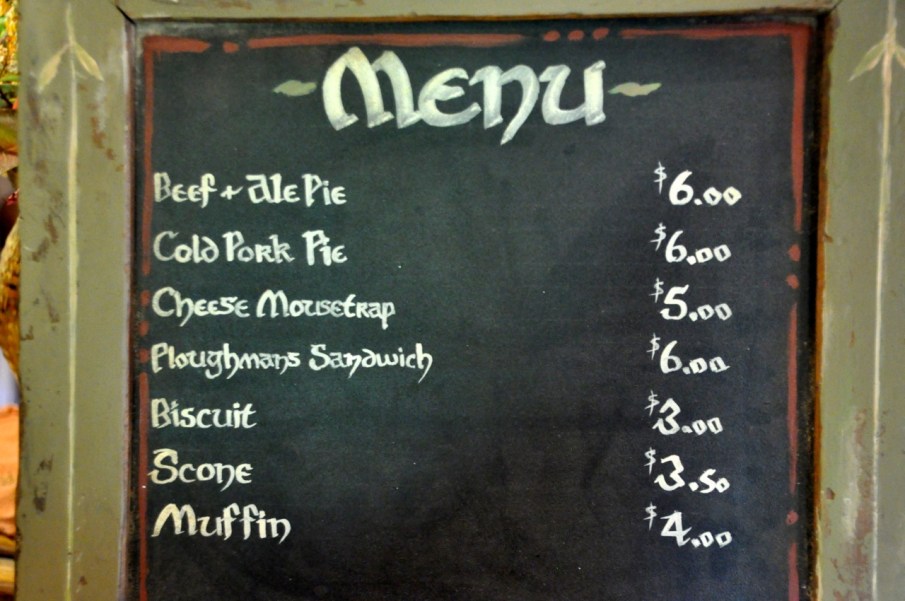 Menu
Beef + Ale Pie $6.00
Cold Pork Pie $6.00
Cheese Mousetrap $5.00
Ploughmans Sandwich $6.00
Biscuit $3.00
Scone $3.50
Muffin $4.00